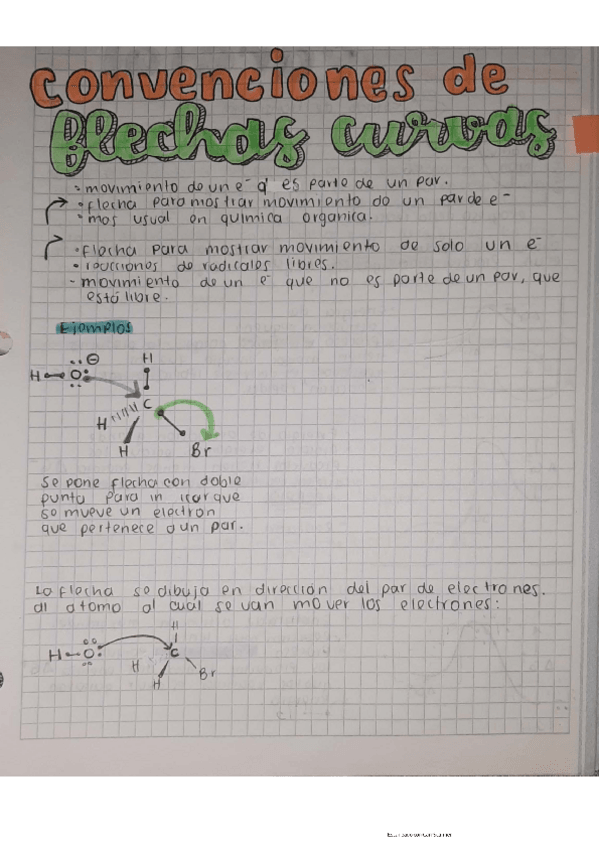 convenciones de
flechas curvas
- movimiento de un e⁻ q' es parte de un par.
• flecha para mostrar movimiento de un par de e⁻
• mos usual en quimica organica.
• flecha para mostrar movimiento de solo un e⁻
• reacciones de radicales libres.
- movimiento de un e⁻ que no es parte de un par, que
está libre.
Ejemplos
⊖ H
H O:
C
H
H Br
Se pone flecha con doble
punta para in icar que
se mueve un electron
que pertenece a un par.
La flecha se dibuja en dirección del par de electrones.
al atomo al cual se van mover los electrones:
H
H-O: C
H Br
H